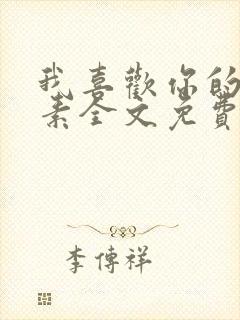 我喜歡你的
素全文免費
李傳祥